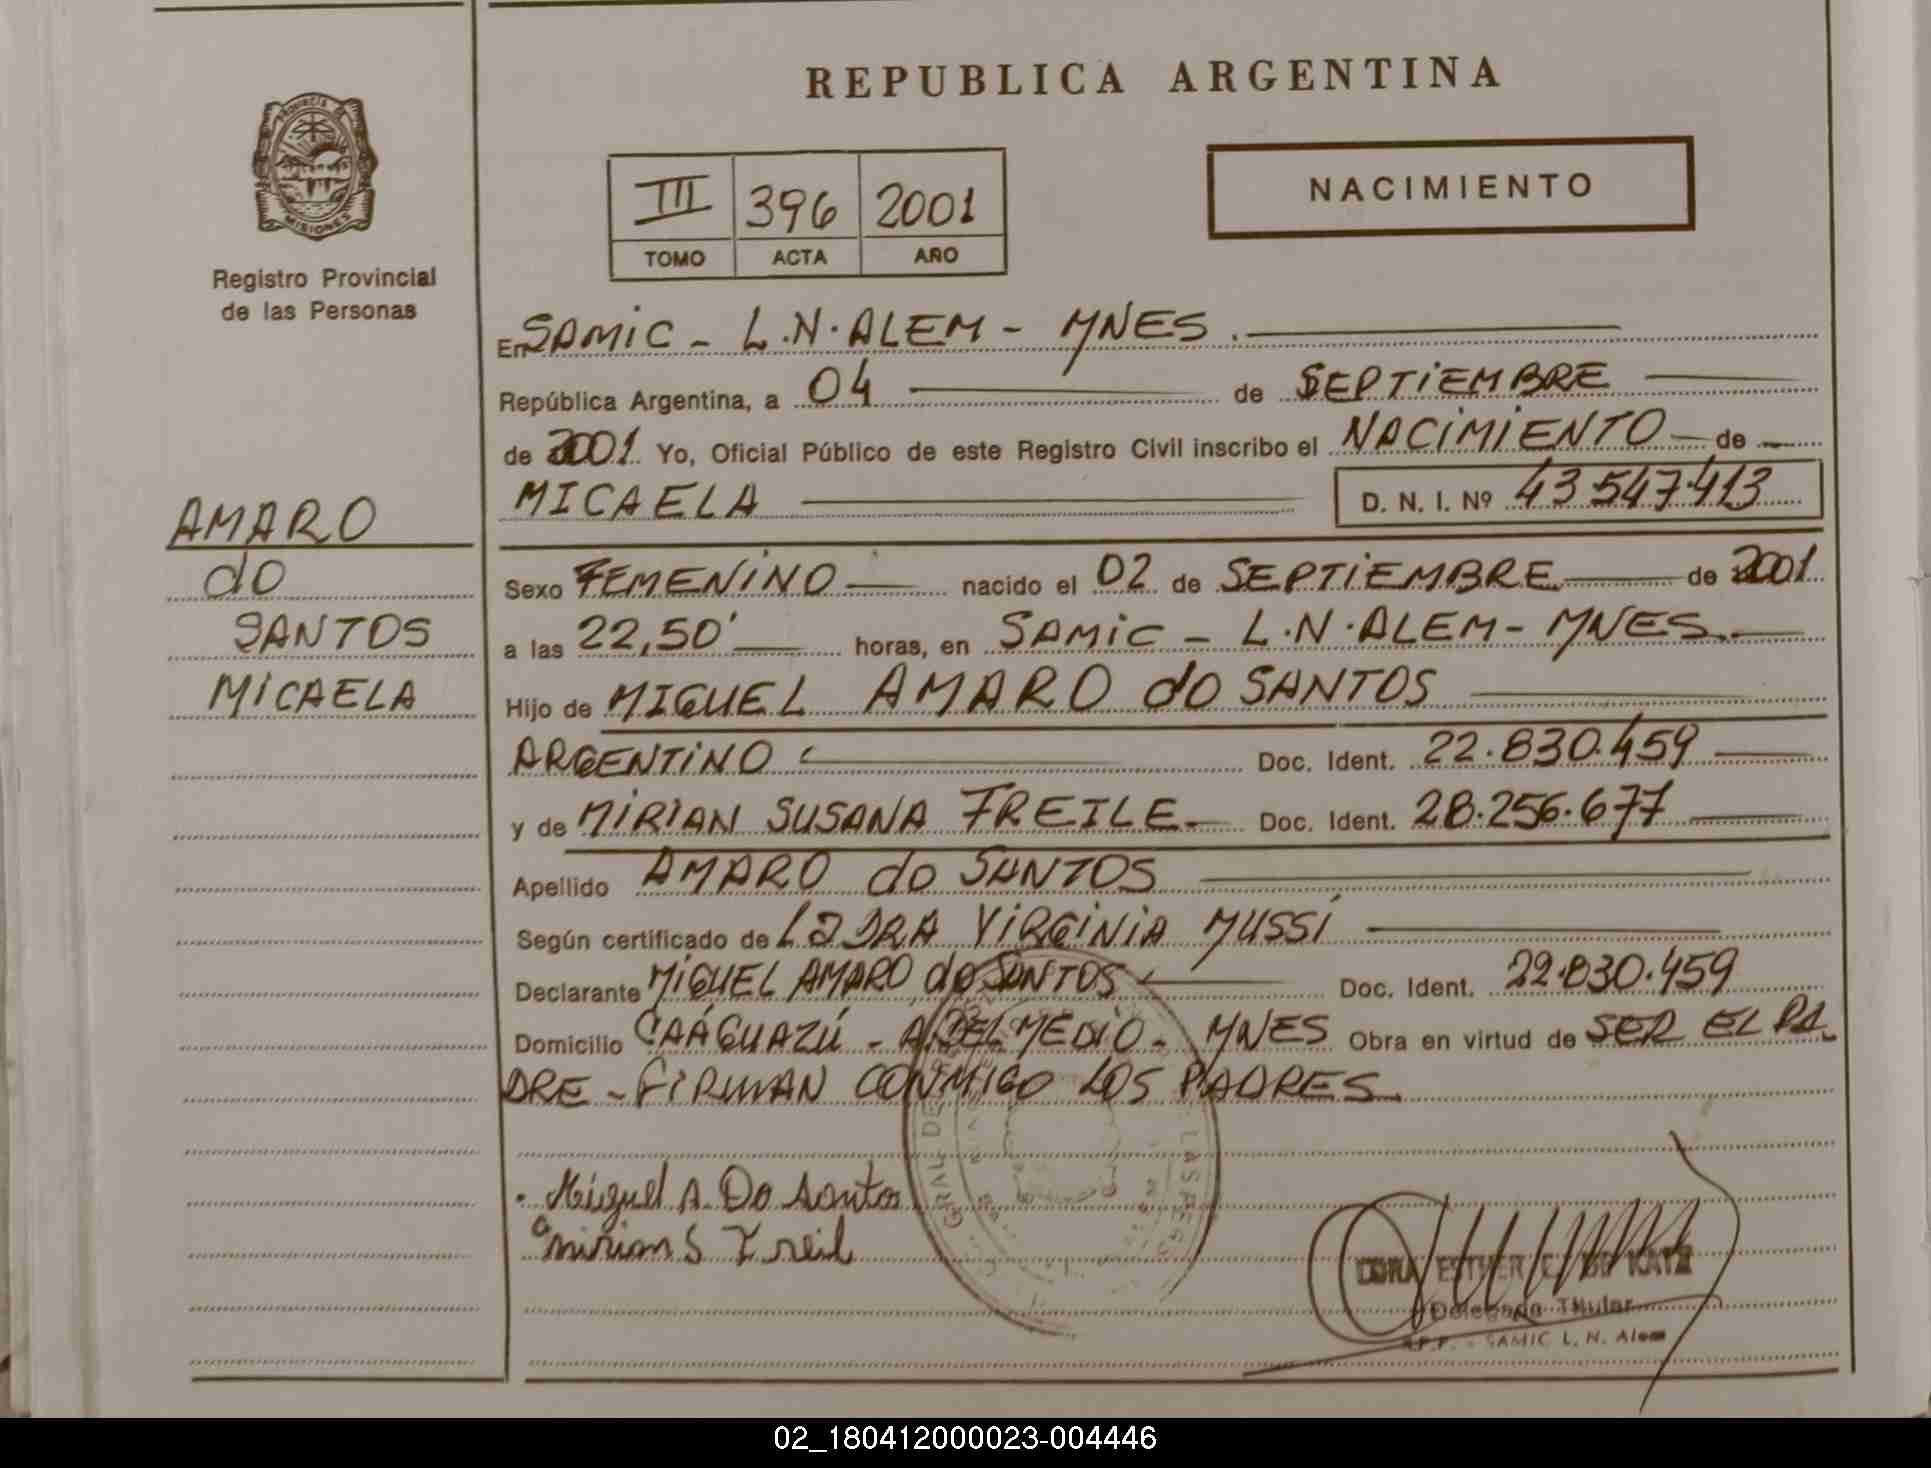 REPUBLICA ARGENTINA
PROVINCIA DE
MISIONES
Registro Provincial
de las Personas
III 396 2001
TOMO ACTA AÑO
NACIMIENTO
En SAMIC - L.N. ALEM - MNES.
República Argentina, a 04 de SEPTIEMBRE
de 2001 Yo, Oficial Público de este Registro Civil inscribo el NACIMIENTO de
MICAELA D. N. I. Nº 43.547.413
AMARO
do
SANTOS
MICAELA
Sexo FEMENINO nacido el 02 de SEPTIEMBRE de 2001
a las 22,50' horas, en SAMIC - L.N. ALEM - MNES.
Hijo de MIGUEL AMARO do SANTOS
ARGENTINO Doc. Ident. 22.830.459
y de MIRIAN SUSANA FREILE Doc. Ident. 28.256.677
Apellido AMARO do SANTOS
Según certificado de La DRA VIRGINIA MUSSI
Declarante MIGUEL AMARO do SANTOS Doc. Ident. 22.830.459
Domicilio CAÁGUAZÚ - A. DEL MEDIO - MNES Obra en virtud de SER EL PA
DRE - FIRMAN CONMIGO LOS PADRES.
Miguel A. Do Santos
mirian S Freil
ESTHER C. DE KATZ
Delegada Titular
SAMIC L. N. Alem
02_180412000023-004446